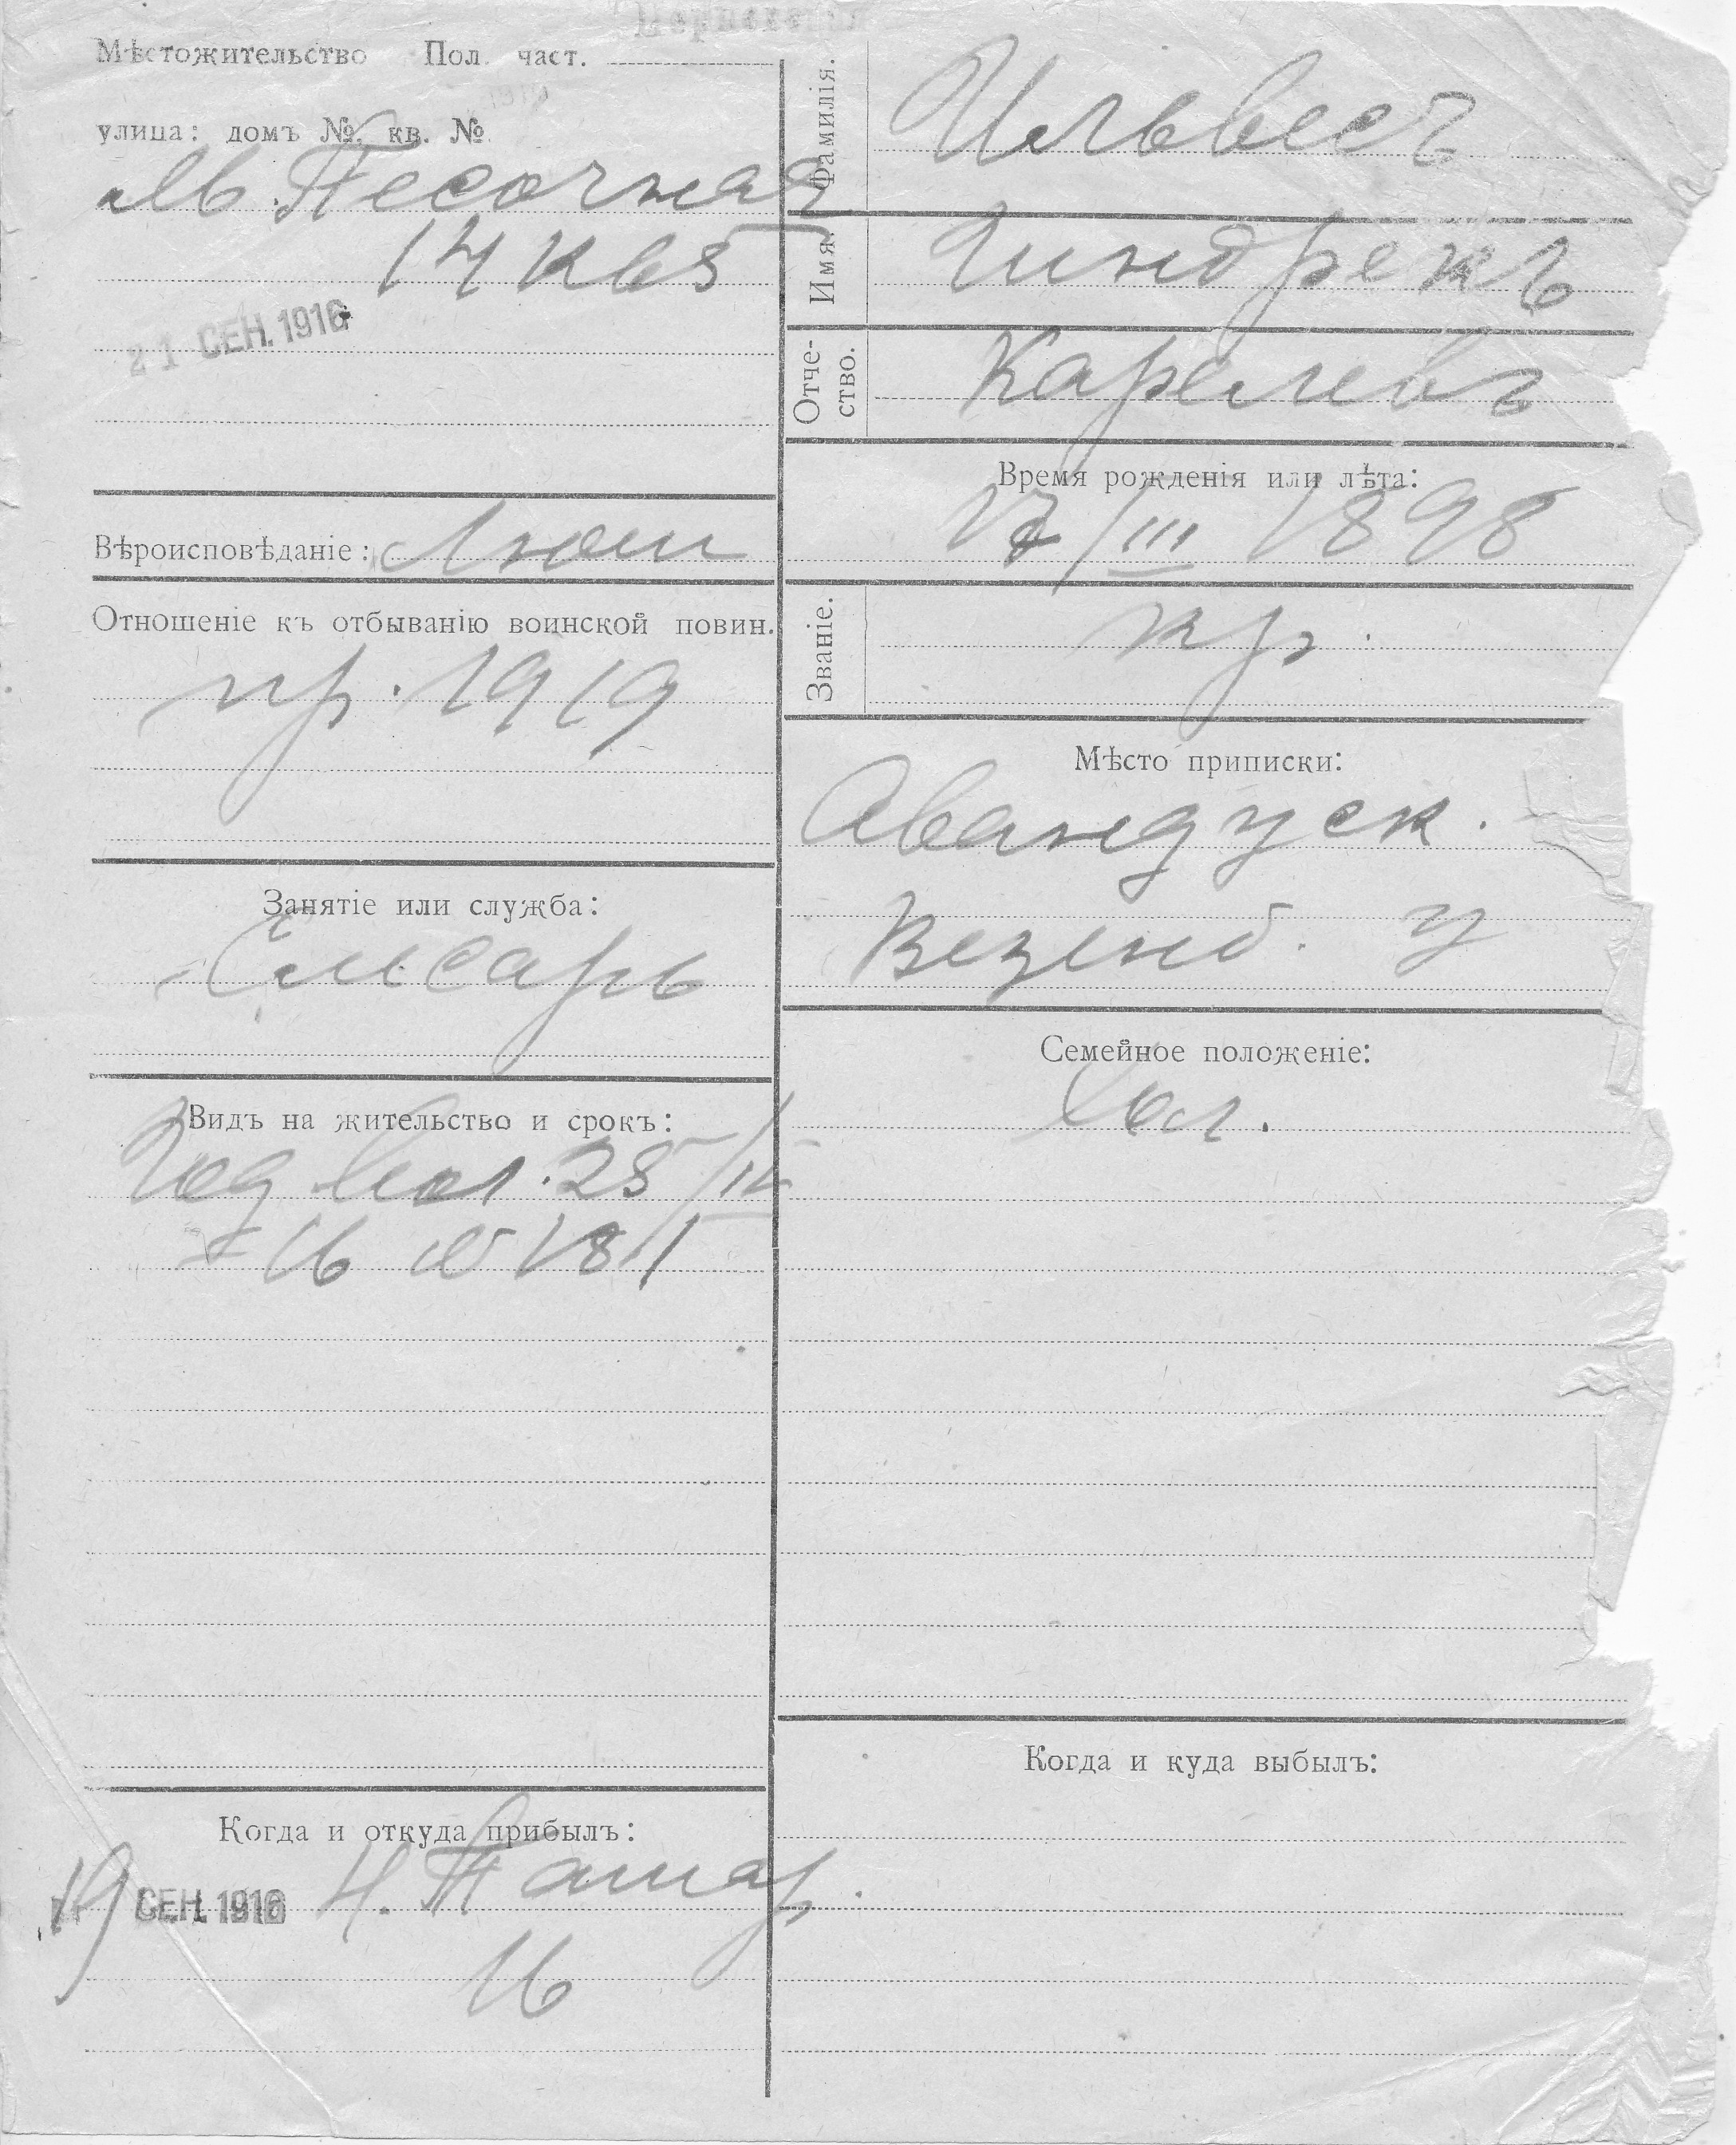 Мѣстожительство Пол. част.
улица: домъ №. кв. №
Мб. Песочная
14 кв 5
21 СЕН. 1916
Вѣроисповѣданіе: Лют
Отношеніе къ отбыванію воинской повин.
пр. 1919
Занятіе или служба:
Слесарь
Видъ на жительство и срокъ:
Год вол. 25/IV
16 181
Когда и откуда прибылъ:
19 СЕН. 1916 Н. Памар.
16
Фамилія. Ильвесъ
Имя. Гиндрекъ
Отче-
ство. Карелевъ
Время рожденія или лѣта:
17/III 1898
Званіе. кр.
Мѣсто приписки:
Авандуск.
Везенб. у
Семейное положеніе:
хол.
Когда и куда выбылъ: